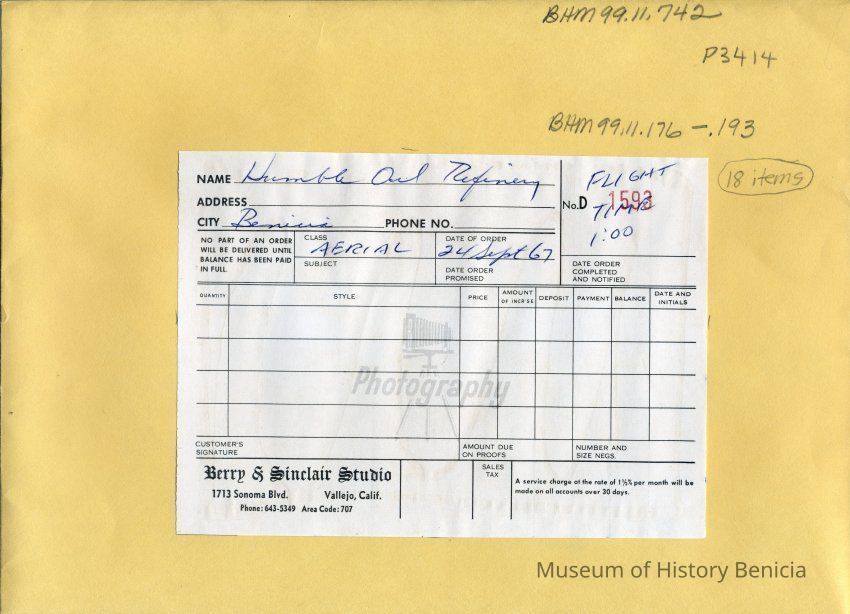 BHM 99.11.742
P3414
BHM 99.11.176 - .193
18 items
NAME Humble Oil Refinery
ADDRESS
CITY Benicia PHONE NO.
No. D 1593
FLIGHT
TIME
1:00
NO PART OF AN ORDER
WILL BE DELIVERED UNTIL
BALANCE HAS BEEN PAID
IN FULL.
CLASS
AERIAL
SUBJECT
DATE OF ORDER
24 Sept 67
DATE ORDER
PROMISED
DATE ORDER
COMPLETED
AND NOTIFIED
QUANTITY STYLE PRICE AMOUNT OF INCR'SE DEPOSIT PAYMENT BALANCE DATE AND INITIALS
Photography
CUSTOMER'S
SIGNATURE
AMOUNT DUE
ON PROOFS
NUMBER AND
SIZE NEGS.
Berry & Sinclair Studio
1713 Sonoma Blvd. Vallejo, Calif.
Phone: 643-5349 Area Code: 707
SALES
TAX
A service charge at the rate of 1½% per month will be
made on all accounts over 30 days.
Museum of History Benicia